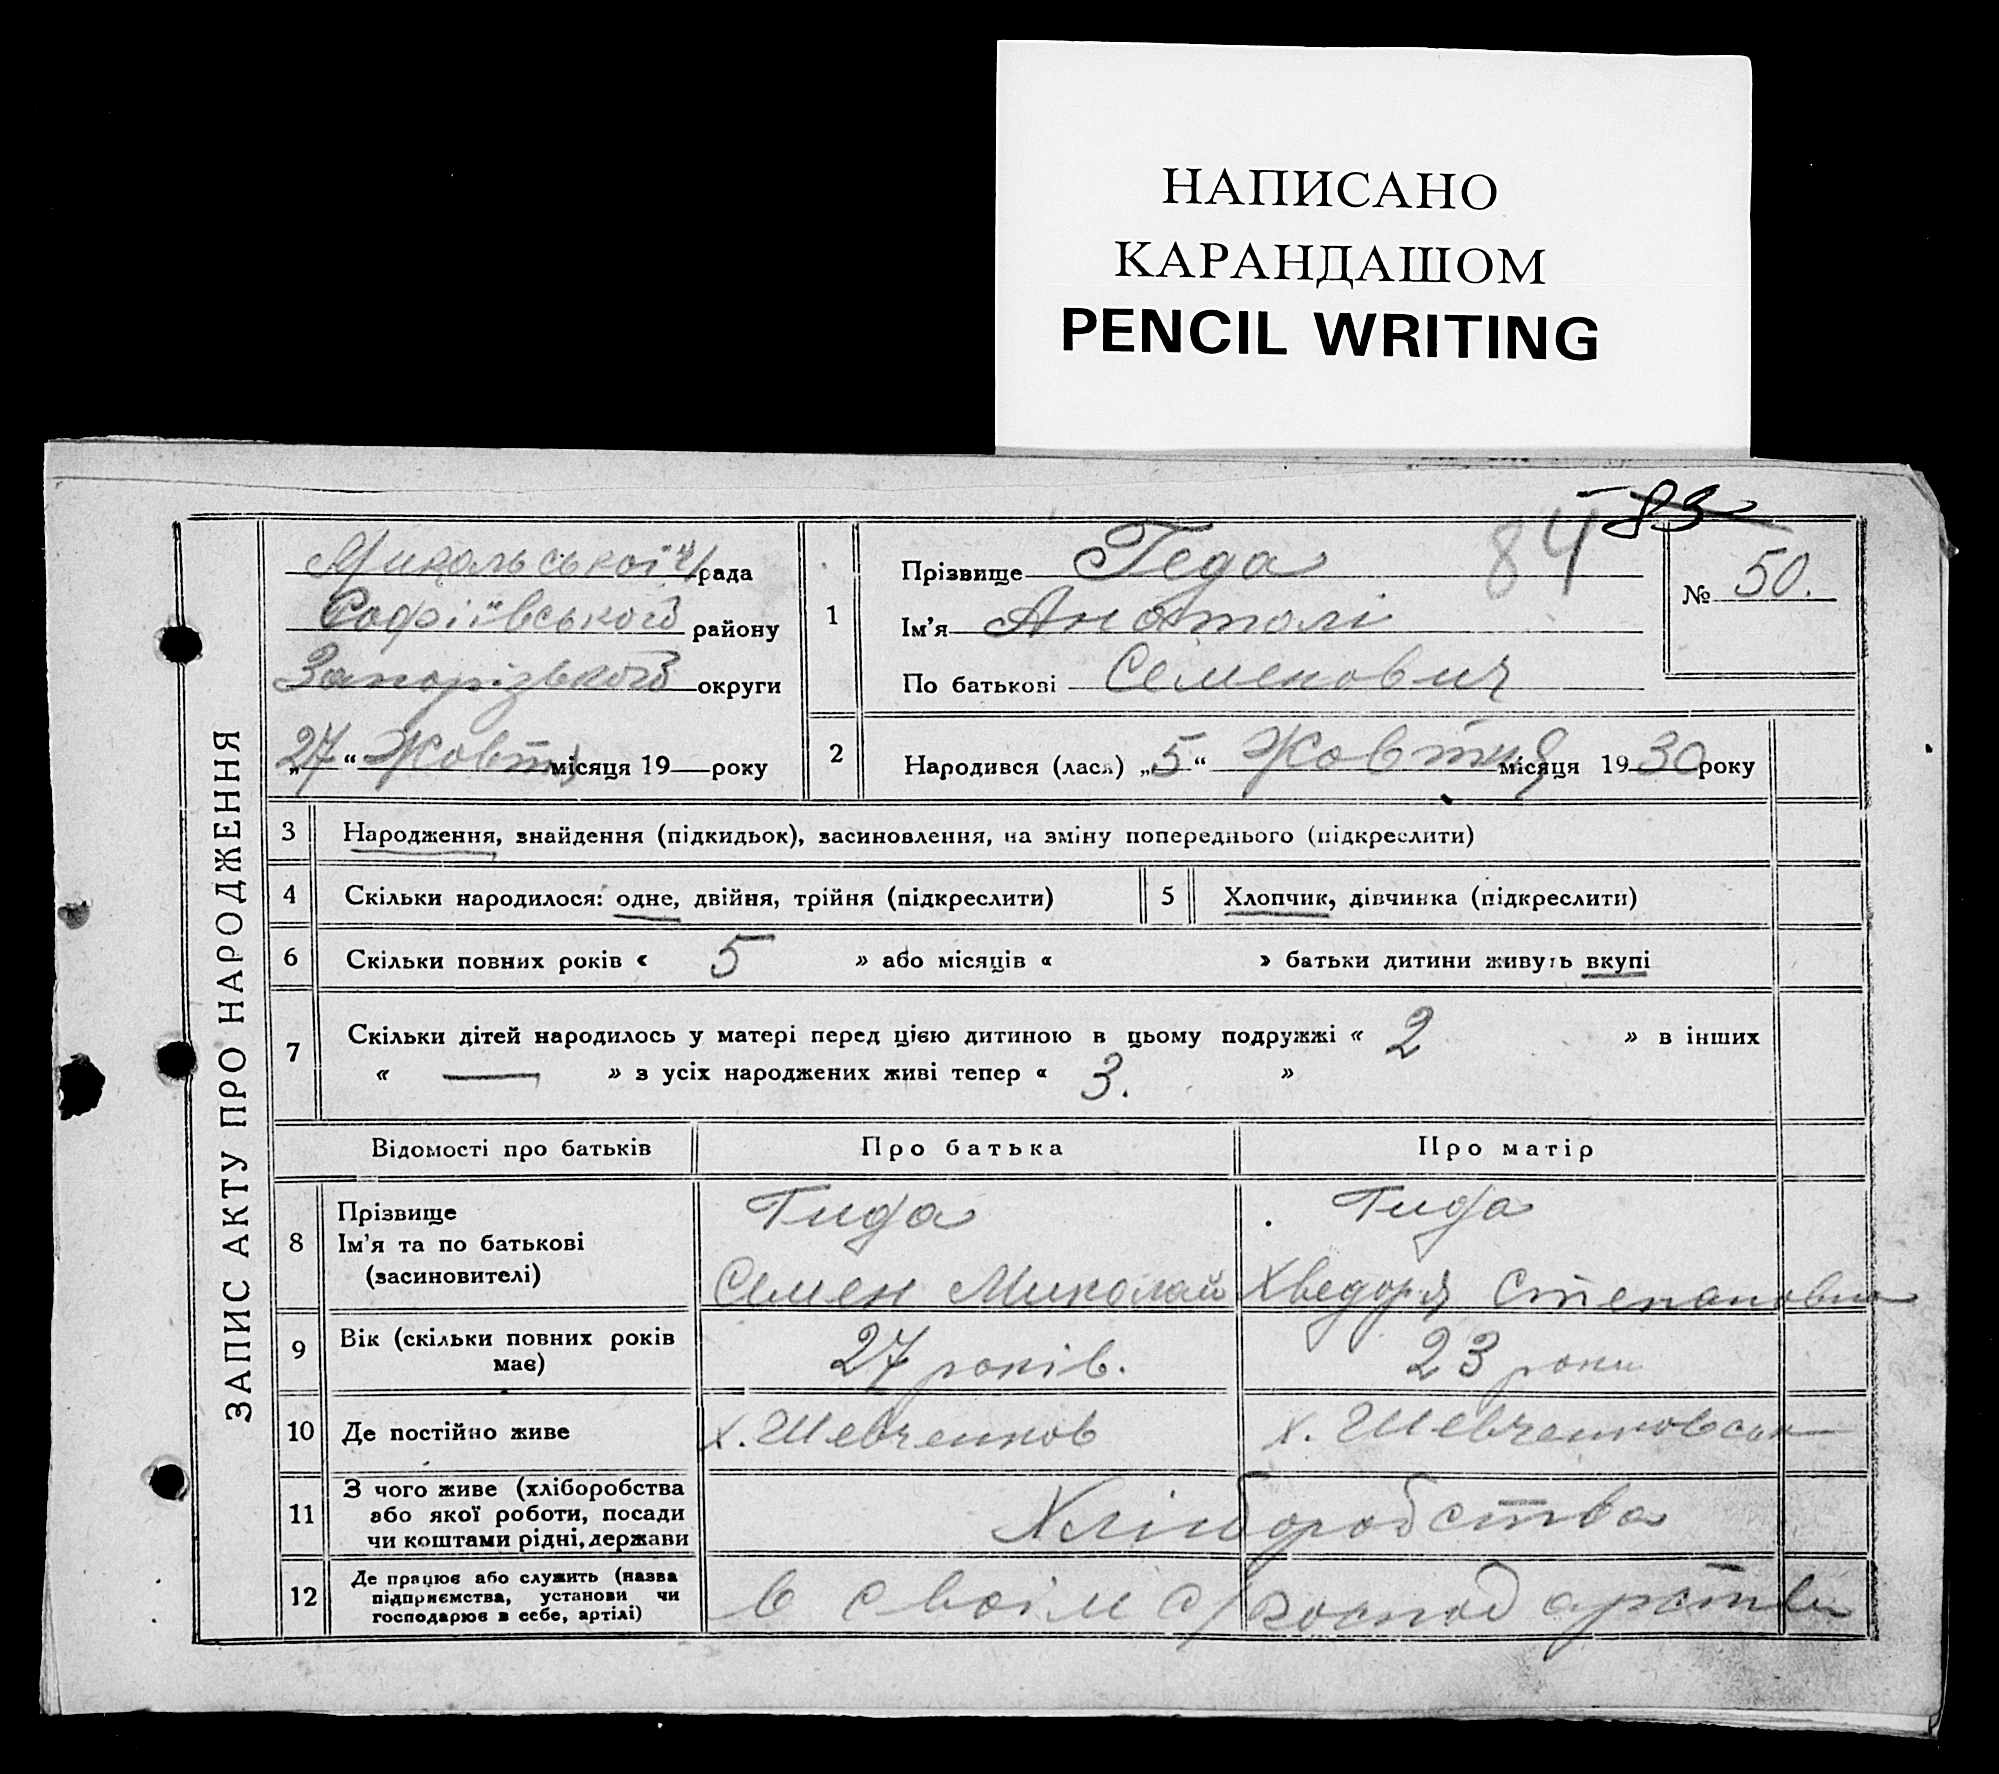 НАПИСАНО
КАРАНДАШОМ
PENCIL WRITING
84 83
ЗАПИС АКТУ ПРО НАРОДЖЕННЯ
Микольської с/рада
Софіївського району
Запорізького округи
„27“ Жовтн місяця 19 року
1
Прізвище Геда
Ім'я Анатолі
По батькові Семенович
№ 50.
2 Народився (лася) „5“ Жовтня місяця 1930 року
3 Народження, знайдення (підкидьок), засиновлення, на зміну попереднього (підкреслити)
4 Скільки народилося: одне, двійня, трійня (підкреслити) 5 Хлопчик, дівчинка (підкреслити)
6 Скільки повних років « 5 » або місяців « » батьки дитини живуть вкупі
7 Скільки дітей народилось у матері перед цією дитиною в цьому подружжі « 2 » в інших
« — » з усіх народжених живі тепер « 3. »
Відомості про батьків Про батька Про матір
8 Прізвище Гида Гида
Ім'я та по батькові
(засиновителі) Семен Миколай Хведоря Степановна
9 Вік (скільки повних років
має) 27 років. 23 роки
10 Де постійно живе х. Шевченков х. Шевченковськ
11 З чого живе (хліборобства
або якої роботи, посади
чи коштами рідні, держави Хліборобства
12 Де працює або служить (назва
підприємства, установи чи
господарює в себе, артілі) в своім с/господарстви